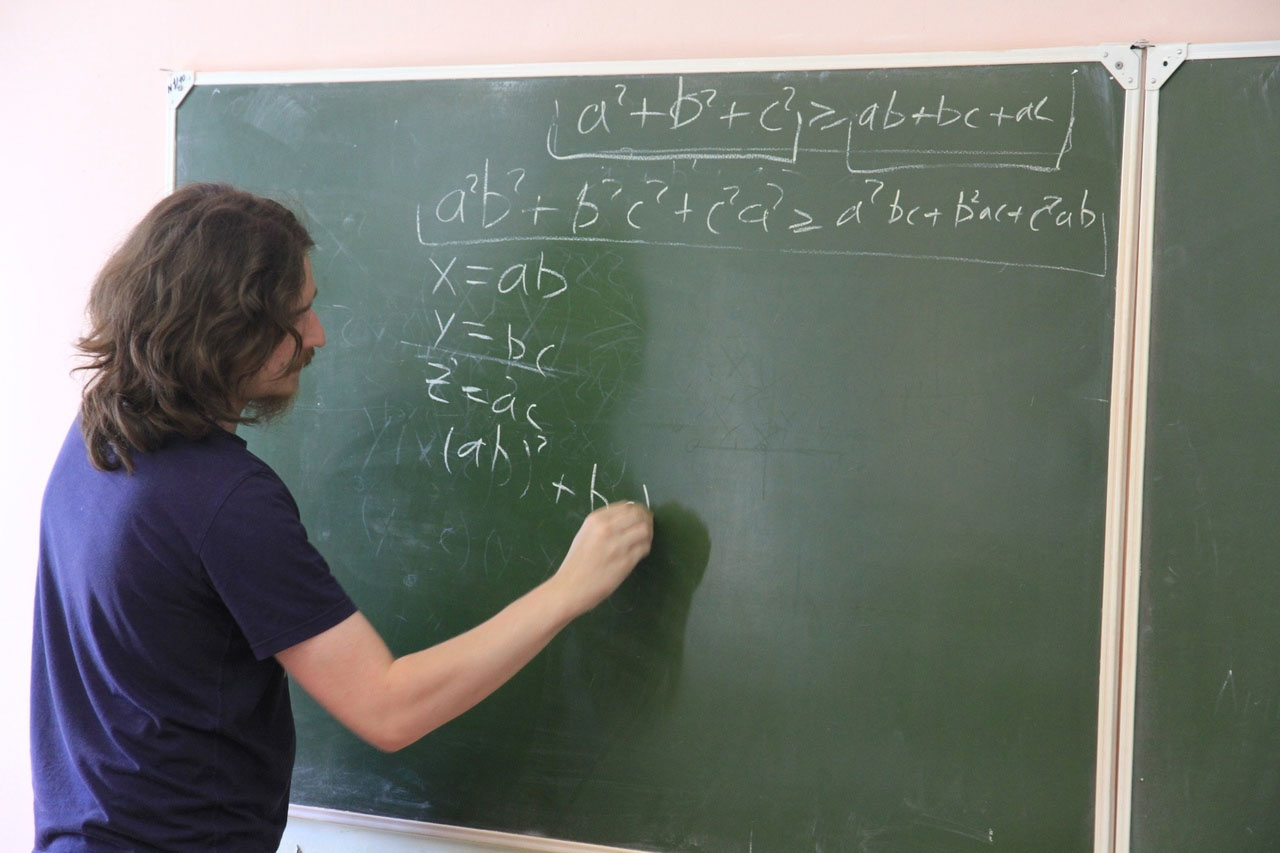 a² + b² + c² ≥ ab + bc + ac
a²b² + b²c² + c²a² ≥ a²bc + b²ac + c²ab
x = ab
y = bc
z = ac
(ab)²
+ b